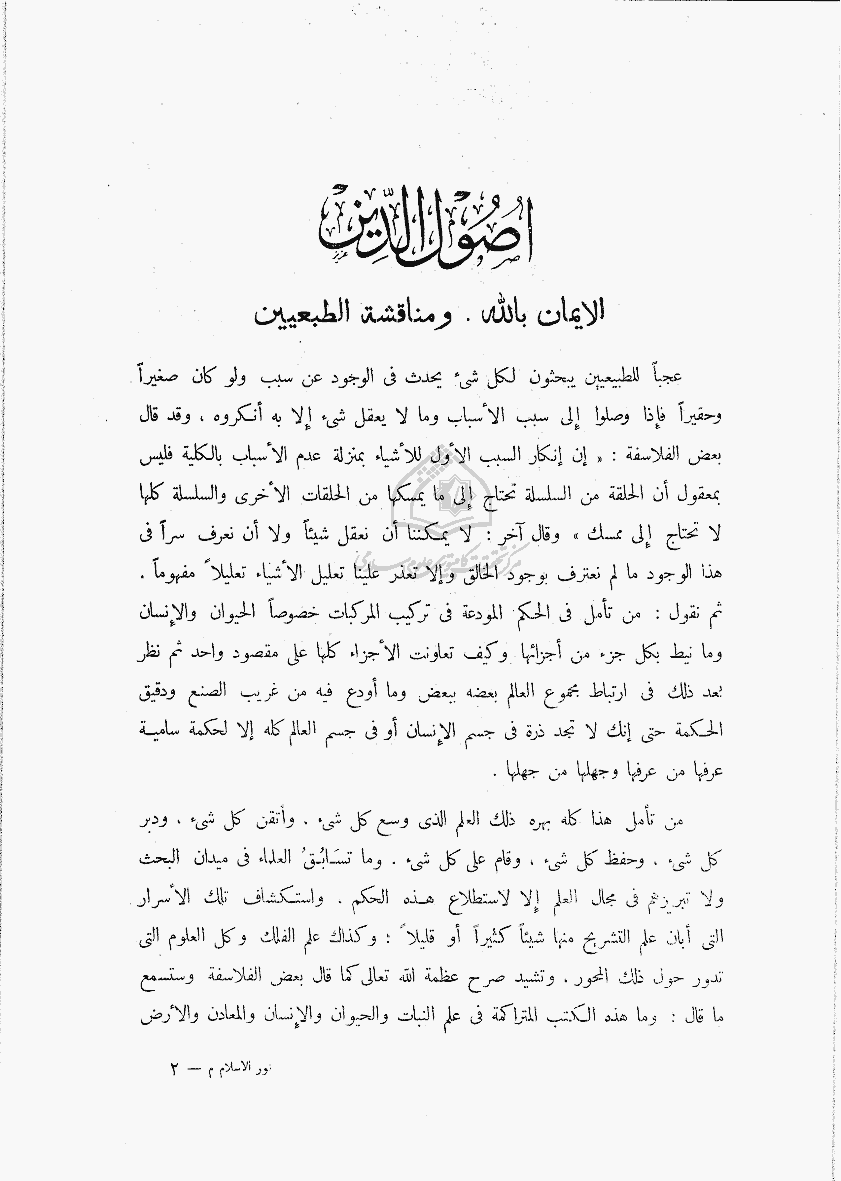 اصول الدين
الايمان بالله . ومناقشة الطبعيين
عجباً للطبيعيين يبحثون لكل شىء يحدث فى الوجود عن سبب ولو كان صغيراً
وحقيراً فإذا وصلوا إلى سبب الأسباب وما لا يعقل شىء إلا به أنكروه ، وقد قال
بعض الفلاسفة : « إن إنكار السبب الأول للأشياء بمنزلة عدم الأسباب بالكلية فليس
بمعقول أن الحلقة من السلسلة تحتاج إلى ما يمسكها من الحلقات الأخرى والسلسلة كلها
لا تحتاج إلى ممسك » وقال آخر : لا يمكننا أن نعقل شيئاً ولا أن نعرف سراً فى
هذا الوجود ما لم نعترف بوجود الخالق وإلا تعذر علينا تعليل الأشياء تعليلاً مفهوماً .
ثم نقول : من تأمل فى الحكم المودعة فى تركيب المركبات خصوصاً الحيوان والإنسان
وما نيط بكل جزء من أجزائها وكيف تعاونت الأجزاء كلها على مقصود واحد ثم نظر
بعد ذلك فى ارتباط مجموع العالم بعضه ببعض وما أودع فيه من غريب الصنع ودقيق
الحكمة حتى إنك لا تجد ذرة فى جسم الإنسان أو فى جسم العالم كله إلا لحكمة سامية
عرفها من عرفها وجهلها من جهلها .
من تأمل هذا كله بهره ذلك العلم الذى وسع كل شىء ، وأتقن كل شىء ، ودبر
كل شىء ، وحفظ كل شىء ، وقام على كل شىء . وما تسابُقُ العلماء فى ميدان البحث
ولا تبريزهم فى مجال العلم إلا لاستطلاع هذه الحكم . واستكشاف تلك الأسرار
التى أبان علم التشريح منها شيئاً كثيراً أو قليلاً ؛ وكذلك علم الفلك وكل العلوم التى
تدور حول ذلك المحور ، وتشيد صرح عظمة الله تعالى كما قال بعض الفلاسفة وستسمع
ما قال : وما هذه الكتب المتراكمة فى علم النبات والحيوان والإنسان والمعادن والأرض
نور الاسلام م — ٢